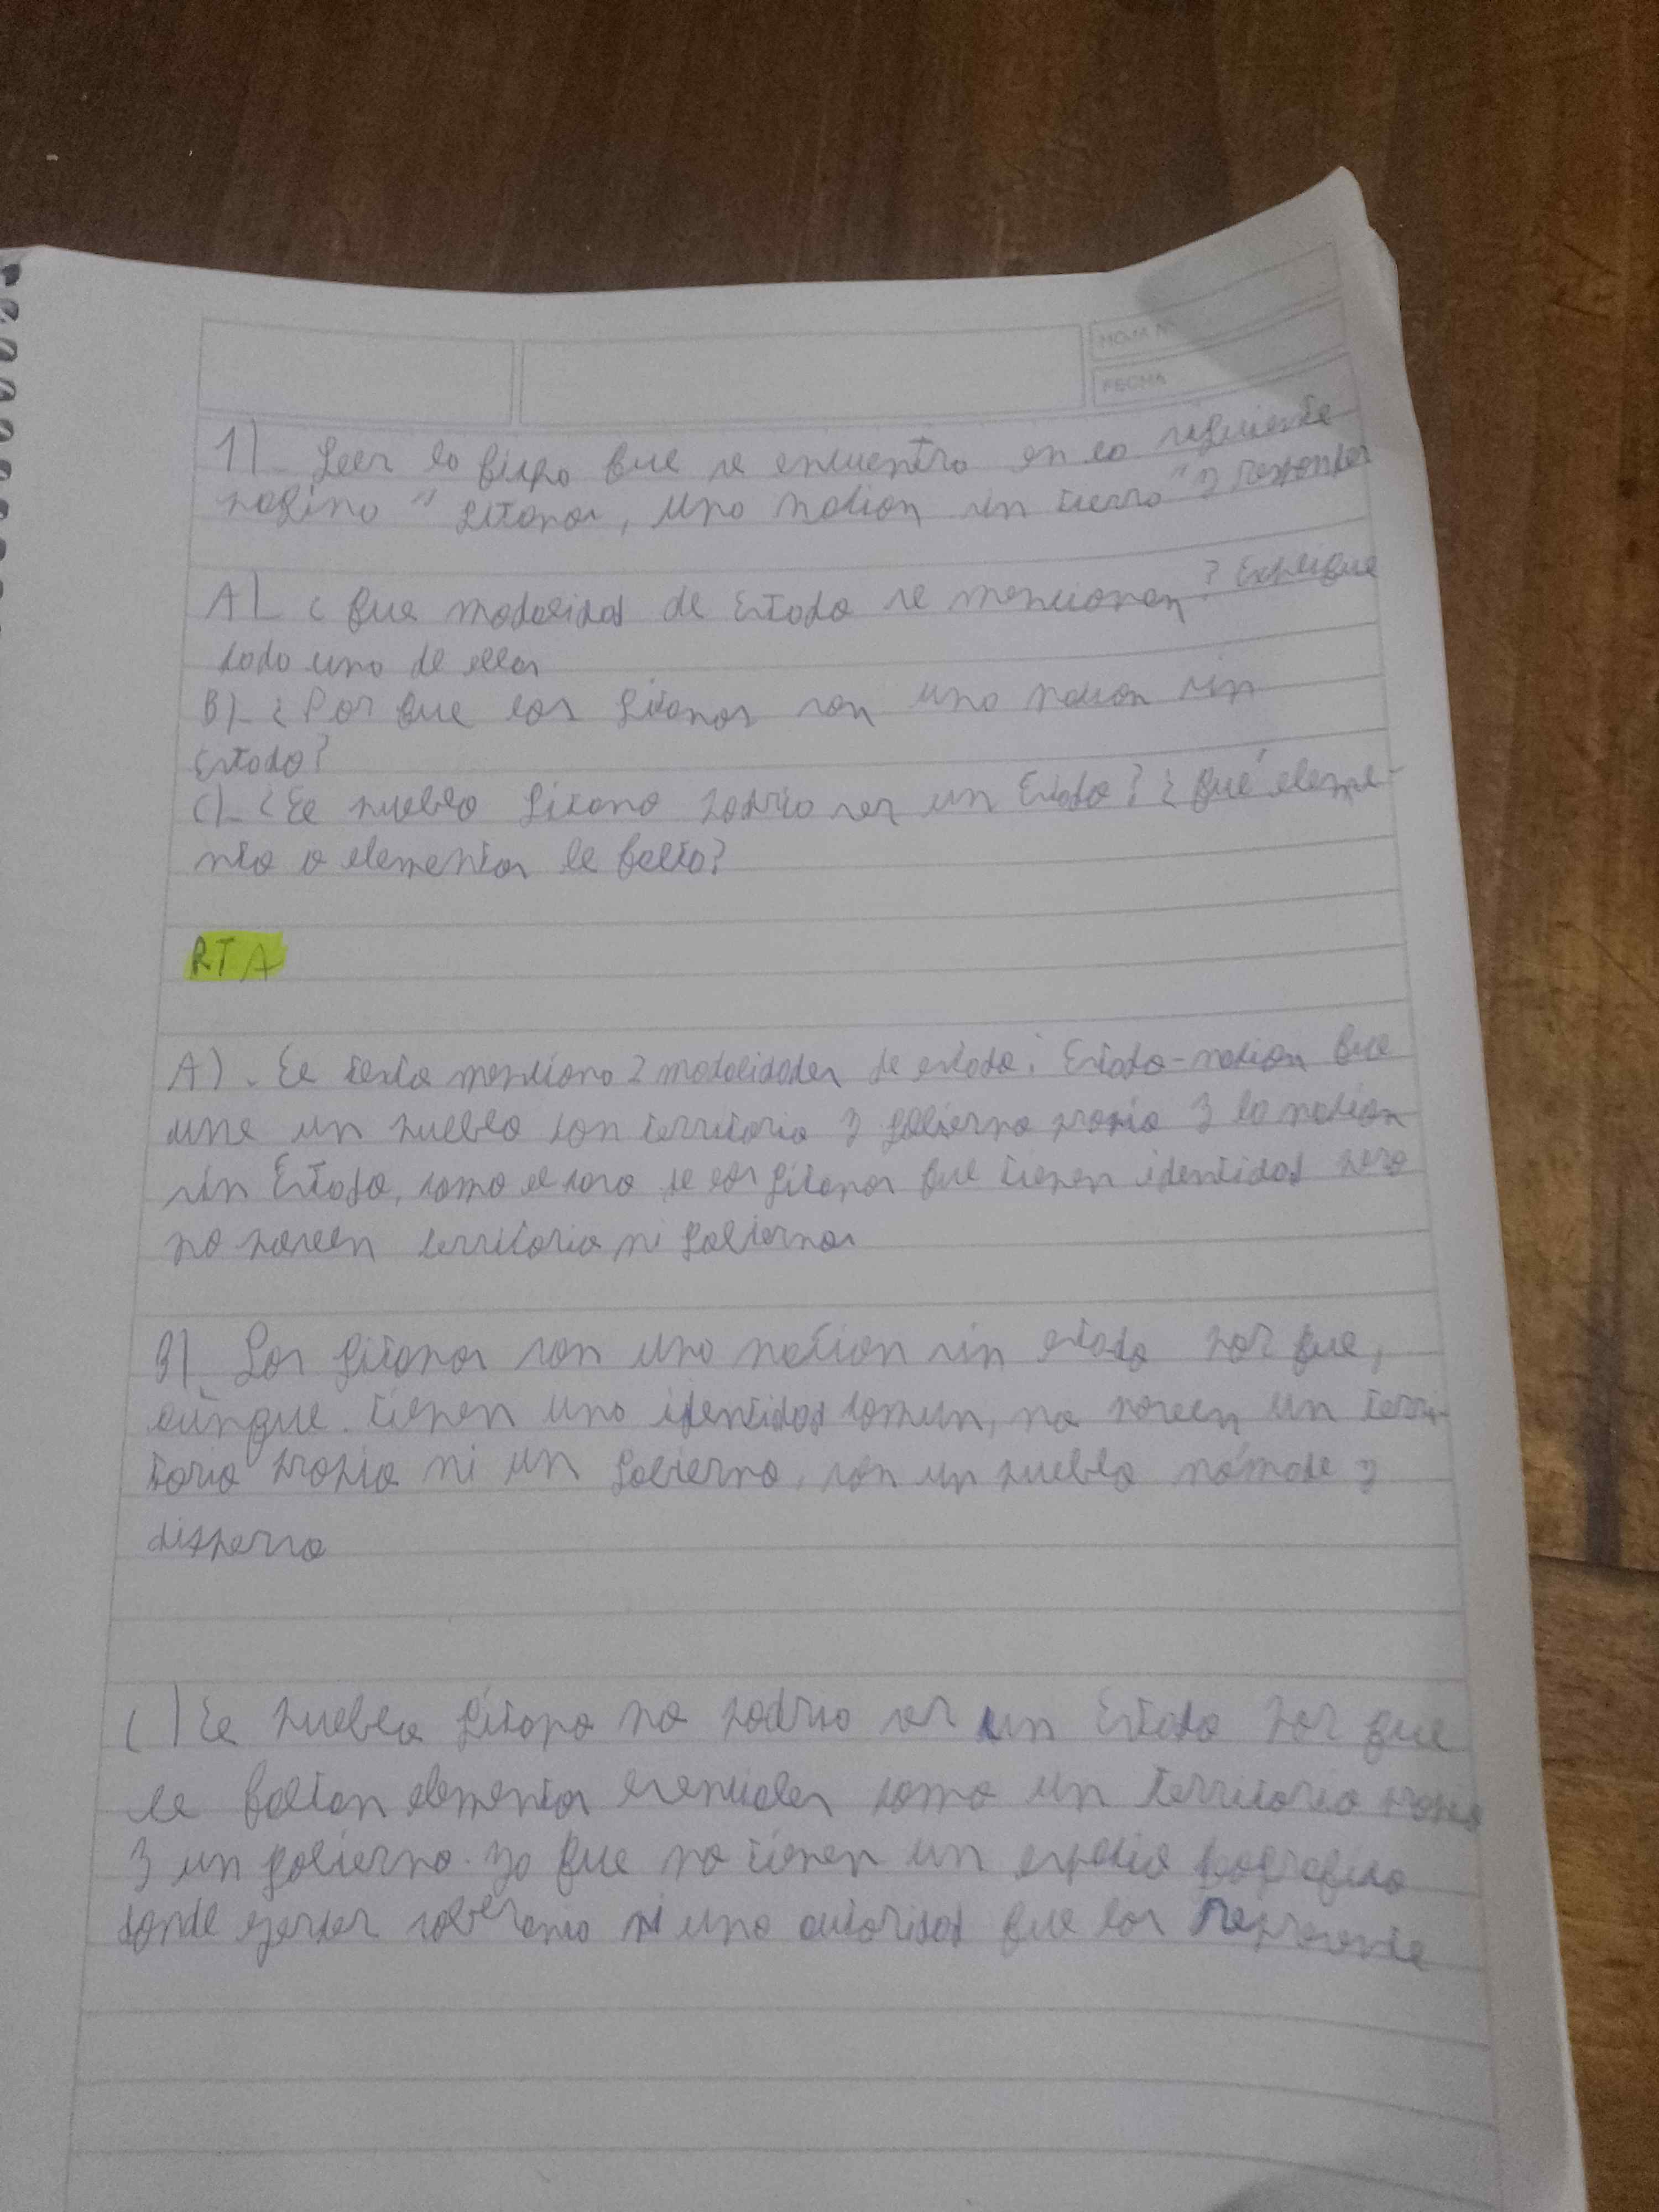 HOJA N°
FECHA
1)_ Leer la ficha que se encuentra en la siguiente
pagina "Gitanos, una nacion sin tierra" y responder
A)_ ¿Que modalidad de Estado se mencionan? Explique
cada uno de ellos
B)_ ¿Por que los gitanos son una nacion sin
Estado?
C)_ ¿El pueblo gitano podria ser un Estado? ¿Qué eleme-
nto o elementos le falta?
RTA
A)_ El texto menciona 2 modalidades de estado: Estado-nacion que
une un pueblo con territorio y gobierno propio y la nacion
sin Estado, como el caso de los gitanos que tienen identidad pero
no poseen territorio ni gobiernos
B)_ Los gitanos son una nacion sin estado por que,
aunque tienen una identidad comun, no poseen un terri-
torio propio ni un gobierno, son un pueblo nómade y
disperso
C) El pueblo gitano no podria ser un Estado por que
le faltan elementos esenciales como un territorio propio
y un gobierno. ya que no tienen un espacio geografico
donde ejercer soberania ni una autoridad que los represente